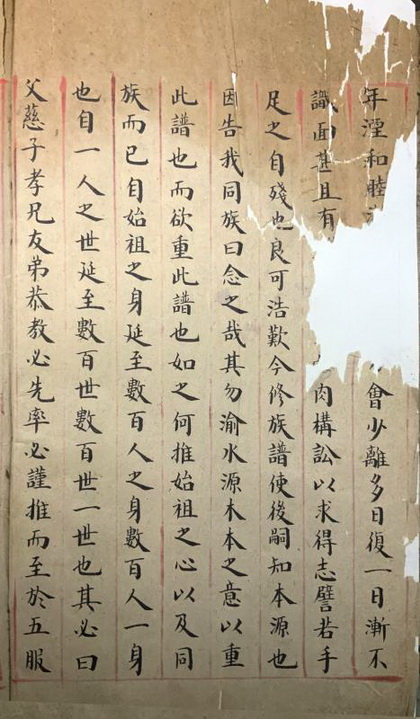 年湮和睦會少離多日復一日漸不
識面甚且有肉構訟以求得志譬若手
足之自殘也良可浩歎今修族譜使後嗣知本源也
因告我同族曰念之哉其勿渝水源木本之意以重
此譜也而欲重此譜也如之何推始祖之心以及同
族而已自始祖之身延至數百人之身數百人一身
也自一人之世延至數百世數百世一世也其必曰
父慈子孝兄友弟恭教必先率必謹推而至於五服